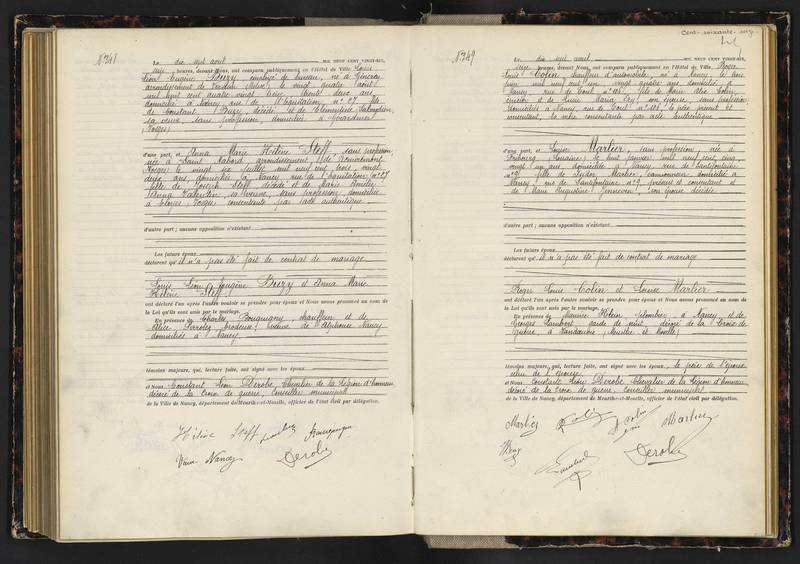 N°248
Le dix sept avril MIL NEUF CENT VINGT-SIX,
onze heures, devant Nous, ont comparu publiquement en l'Hôtel de Ville Louis
Léon Eugène Buzy, employé de bureau, né à
arrondissement de Verdun (Meuse) le vingt quatre août
mil huit cent quatre vingt treize, trente deux ans,
domicilié à Nancy rue de l'Équitation, n° 27 fils
de Constant Buzy, décédé et de Clémentine
sa veuve, sans profession, domiciliée à Gérardmer
(Vosges)
d'une part, et Anna Marie Hélène Steff, sans profession,
née à Saint Nabord arrondissement de Remiremont
Vosges le vingt six juillet mil neuf cent trois, vingt
deux ans, domiciliée à Nancy rue de l'Équitation n° 27
fille de Joseph Steff décédé et de Marie Amélie
Anna Valentin, sa veuve, sans profession, domiciliée
à Eloyes Vosges consentante par acte authentique.
d'autre part ; aucune opposition n'existant
Les futurs époux
déclarent qu'il n'a pas été fait de contrat de mariage
Louis Léon Eugène Buzy et Anna Marie
Hélène Steff
ont déclaré l'un après l'autre vouloir se prendre pour époux et Nous avons prononcé au nom de
la Loi qu'ils sont unis par le mariage.
En présence de Charles Bouquigny, chauffeur et de
Alice brodeuse, veuve de Alphonse Nancy
domiciliés à Nancy
témoins majeurs, qui, lecture faite, ont signé avec les époux
et Nous Constant Léon Derobe, Chevalier de la Légion d'honneur,
décoré de la croix de guerre, Conseiller municipal
de la Ville de Nancy, département de Meurthe-et-Moselle, officier de l'état civil par délégation.
Hélène Steff
Veuve Nancy Derobe
Cent-soixante-onze
N°249
Le dix sept avril MIL NEUF CENT VINGT-SIX,
onze heures, devant Nous, ont comparu publiquement en l'Hôtel de Ville Roger
Louis Colin chauffeur d'automobile, né à Nancy le trois
juin mil neuf cent un, vingt quatre ans, domicilié à
Nancy rue de Toul n° fils de Marie Alix Colin,
et de Lucie Maria son épouse, sans profession
domiciliés à Nancy, rue de Toul n° le père présent et
consentant, la mère consentante par acte authentique
d'une part, et Louise Martier, sans profession, née à
Fribourg (Lorraine) le huit janvier mil neuf cent cinq
vingt un ans domiciliée à Nancy rue de Santifontaine
n° 9 fille de Isidor Martier, camionneur domicilié à
Nancy rue de Santifontaine n° 9 présent et consentant et
de Marie Augustine son épouse décédée
d'autre part ; aucune opposition n'existant
Les futurs époux
déclarent qu'il n'a pas été fait de contrat de mariage
Roger Louis Colin et Louise Martier
ont déclaré l'un après l'autre vouloir se prendre pour époux et Nous avons prononcé au nom de
la Loi qu'ils sont unis par le mariage.
En présence de Maurice plombier à Nancy et de
Georges Lambert, garde de nuit, décoré de la Croix de
guerre, à Vandoeuvre (Meurthe et Moselle)
témoins majeurs, qui, lecture faite, ont signé avec les époux, le père de l'époux
celui de l'épouse
et Nous Constant Léon Derobe Chevalier de la Légion d'honneur
décoré de la croix de guerre, conseiller municipal
de la Ville de Nancy, département de Meurthe-et-Moselle, officier de l'état civil par délégation.
Martier Colin Colin Martier
Derobe